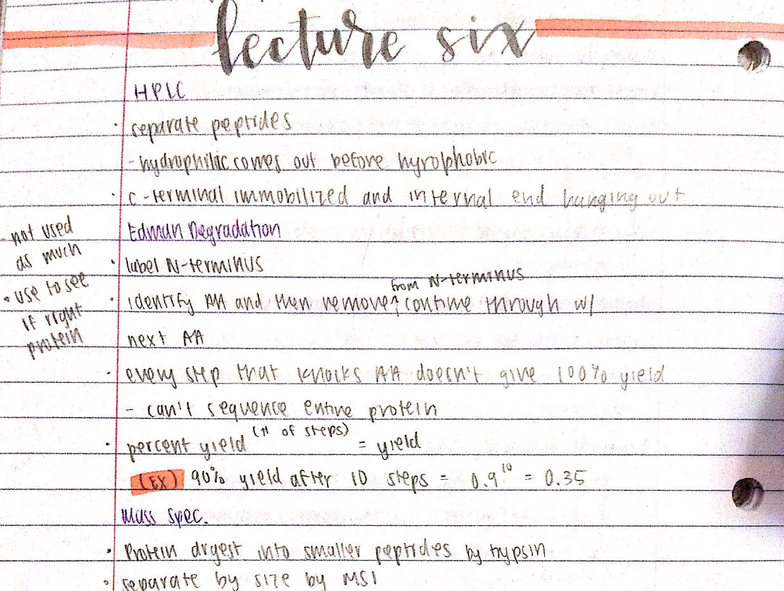 lecture six
HPLC
· separate peptides
- hydrophilic comes out before hyrophobic
· c-terminal immobilized and internal end hanging out
Edman Degradation
- not used
as much
• use to see
if right
protein
· label N-terminus
from N-terminus
· identify AA and then remove ↑ continue through w/
next AA
· every step that knocks AA doesn't give 100% yield
- can't sequence entire protein
· percent yield (# of steps) = yield
(EX) 90% yield after 10 steps = 0.9^10 = 0.35
Mass spec.
· Protein digest into smaller peptides by trypsin
· separate by size by MS1